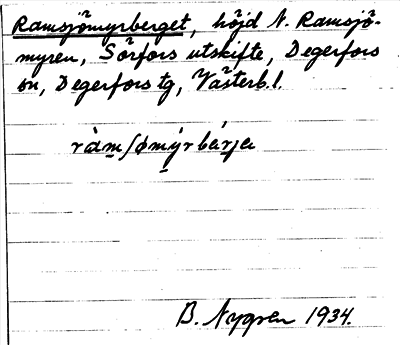 Ramsjömyrberget, höjd N. Ramsjö-
myren, Sörfors utskifte, Degerfors
sn, Degerfors tg, Västerb. l.
ràmʃømýrbárja
B. Nygren 1934.